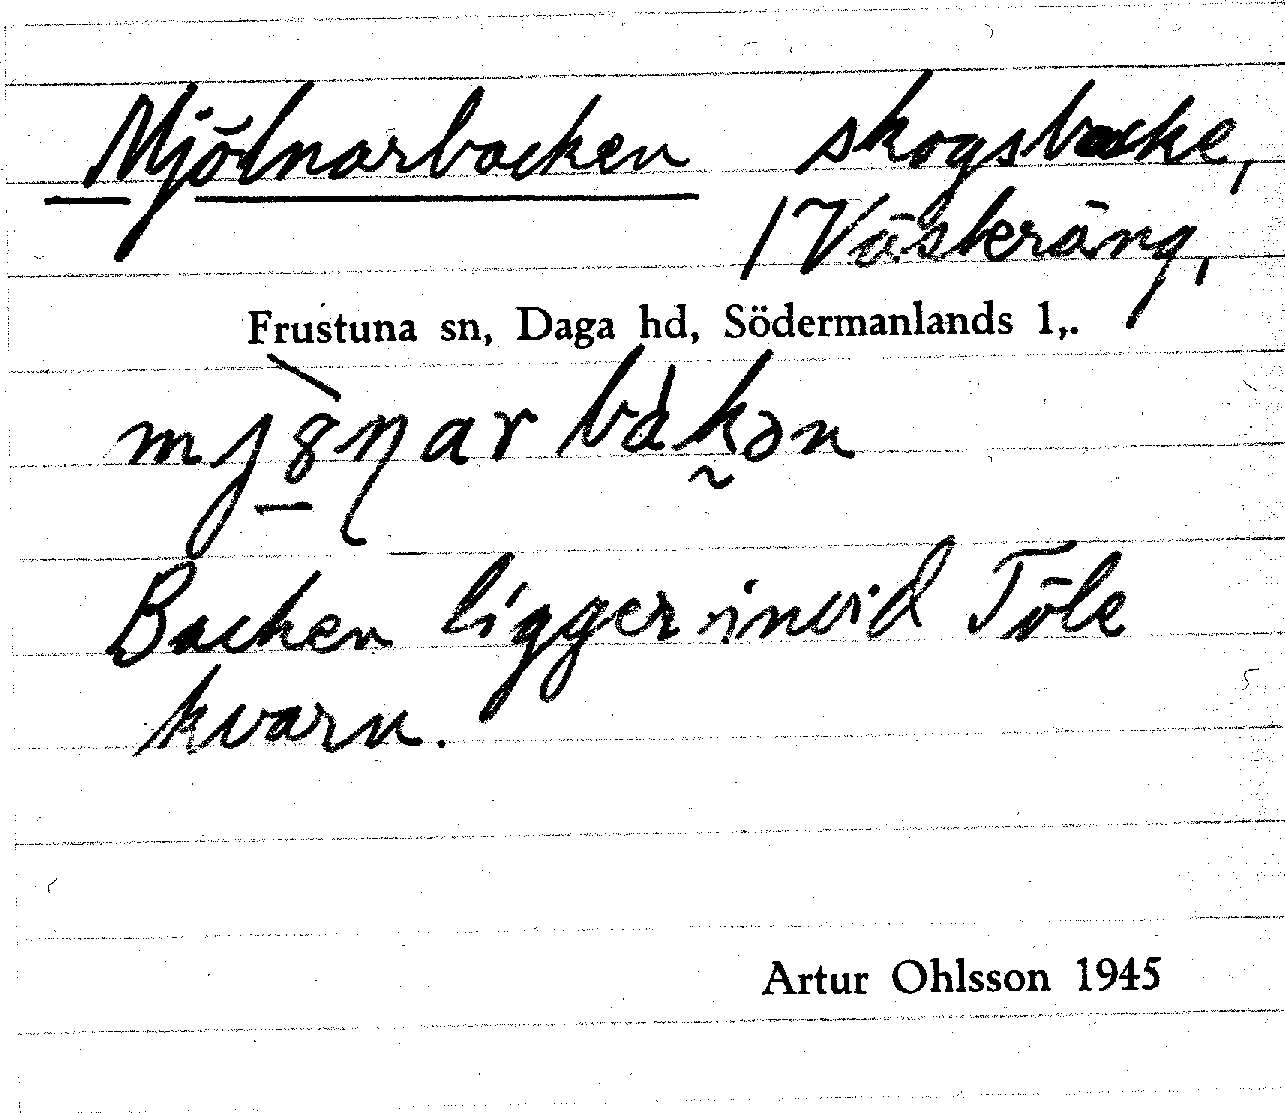 Mjölnarbacken skogsbacke,
/ Västeräng,
Frustuna sn, Daga hd, Södermanlands l,.
Backen ligger invid Töle
kvarn.
Artur Ohlsson 1945